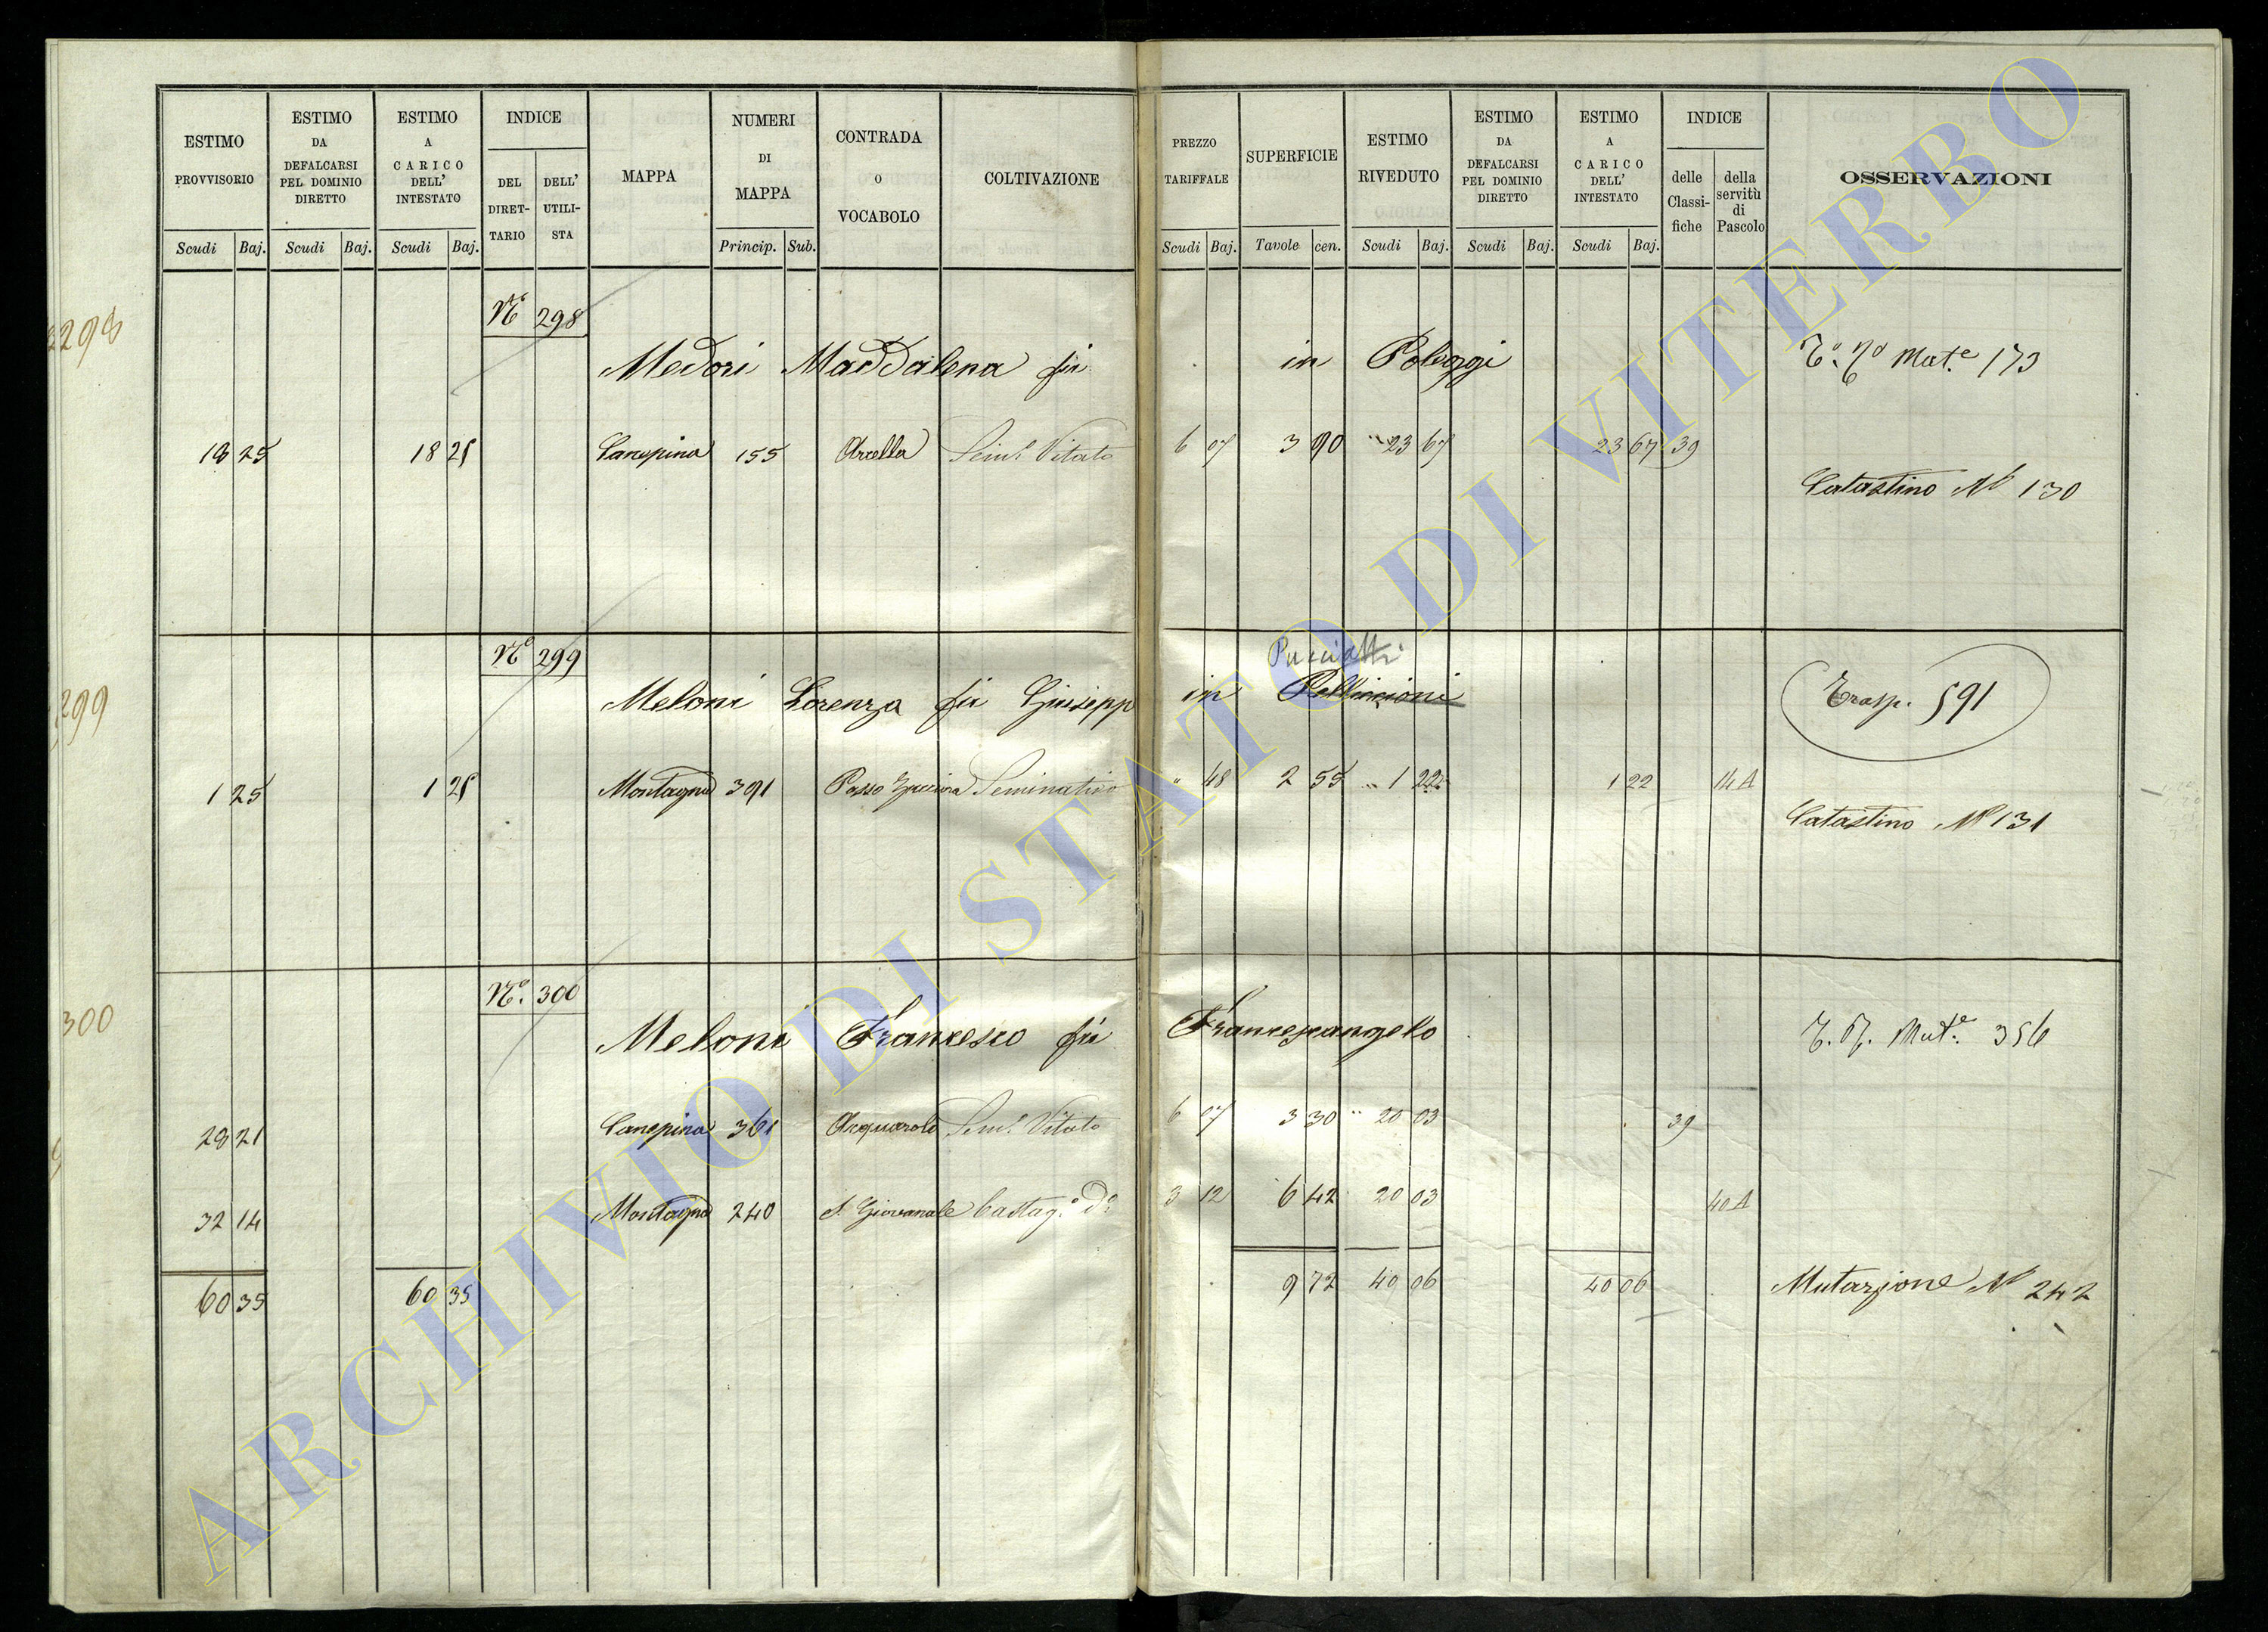 ESTIMO PROVVISORIO Scudi Baj.
ESTIMO DA DEFALCARSI PEL DOMINIO DIRETTO Scudi Baj.
ESTIMO A CARICO DELL' INTESTATO Scudi Baj.
INDICE DEL DIRET- TARIO DELL' UTILI- STA
MAPPA
NUMERI DI MAPPA Princip. Sub.
CONTRADA O VOCABOLO
COLTIVAZIONE
PREZZO TARIFFALE Scudi Baj.
SUPERFICIE Tavole cen.
ESTIMO RIVEDUTO Scudi Baj.
ESTIMO DA DEFALCARSI PEL DOMINIO DIRETTO Scudi Baj.
ESTIMO A CARICO DELL' INTESTATO Scudi Baj.
INDICE delle Classi- fiche della servitù di Pascolo
OSSERVAZIONI
298
No 298
Medori Maddalena fu in Poleggi
Mut.e 173
18 25 18 25 Canepina 155 Arcella Sem.o Vitato 6 07 3 90 " 23 67 23 67 39
Catastino No 130
299
No 299
Pucciatti
Meloni Lorenza fu Giusepp in Pelliccioni
Trasp. 591
1 25 1 25 Montagna 391 Passo Seminativo " 48 2 55 " 1 22 1 22 14 A
Catastino No 131
300
No. 300
Meloni Francesco fu Francescangelo
Mut.e 356
28 21 Canepina 361 Acquarolo Sem.o Vitato 6 07 3 30 " 20 03 39
32 14 Montagna 240 S. Giovanale Castag.o d.o 3 12 6 42 20 03 40 A
60 35 60 35 9 72 40 06 40 06
Mutazione No 242
ARCHIVIO DI STATO DI VITERBO